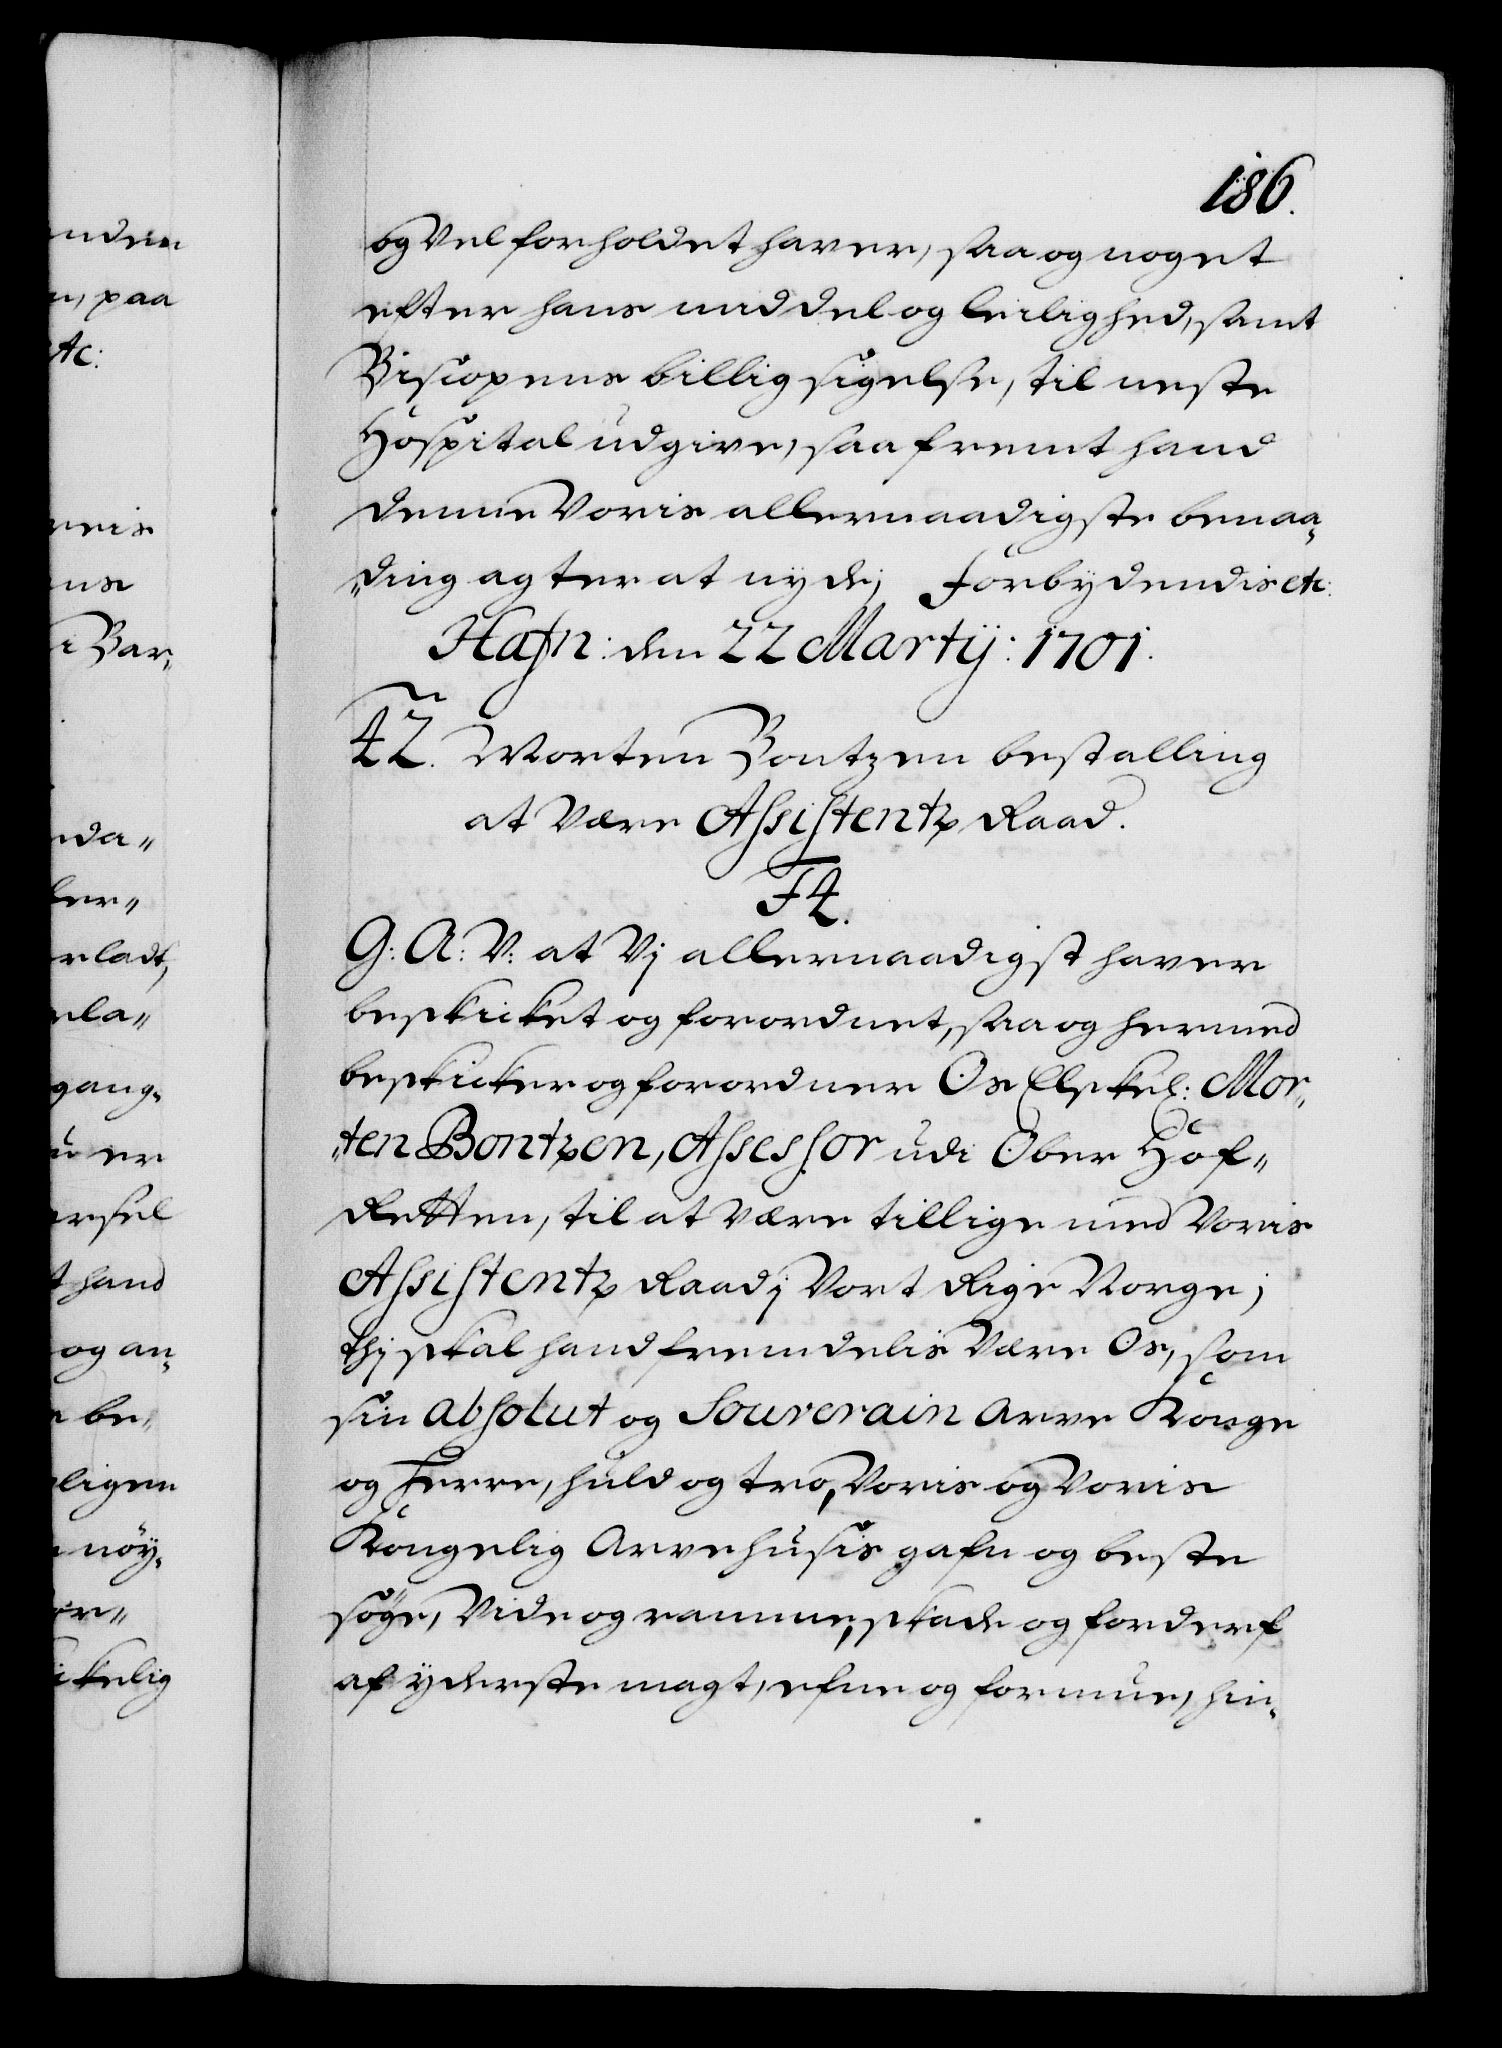 186.
og Vel forholdet haver, saa og noget
efter hans middel og leilighed, samt
Biscopens billig sigelse, til neste
Hospital udgive, saafremt hand
denne Voris allernaadigste benaa„
„ding agter at nyde; Forbydendis etc:
Hafn: den 22 Martij: 1701.
42. Morten Bontzen bestalling
at Være Assistentz Raad.
F4.
G: A: V: at Vj allernaadigst haver
beskicket og forordnet, saa og hermed
beskicker og forordner Os Elskel: Mor„
„ten Bontzen, Assessor udi Ober Hof„
Retten, til at Være tillige med Voris
Assistentz Raad j Vort Rige Norge;
thj skal hand fremdelis Være Os, som
sin absolut og Souverain Arve Konge
og Herre, huld og tro, Voris og Voris
Kongelig Arvehusis gafn og beste
søge, Vide og ramme, skade og forderf
af yderste magt, efne og formue, hin„
enden
n, paa
etc:
reis
ens
i Bar„
nda„
ler„
rladt,
ela„
gang„
u er
ersel
t hand
og an„
e be„
eligen
nöy„
er„
ickelig